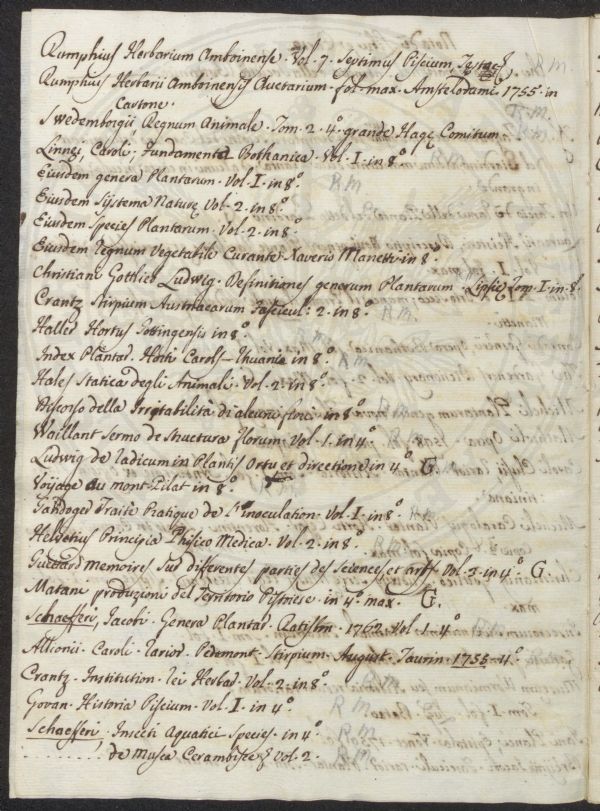 Rumphius Herbarium Amboinense. Vol. 7. Septimus Piscium R.M.
Rumphius Herbarii Amboinensis Auctarium. fol. max. Amstelodami. 1755. in
Cartone. R.M.
Swedemborgii, Regnum Animale. Tom. 2. 4.º grande Hagę Comitum
Linnei, Caroli; Fundamenta Bothanica. Vol. I. in 8.º
Eiusdem genera Plantarum. Vol. I. in 8.º R M
Eiusdem Sÿstema Naturę Vol. 2. in 8.º
Eiusdem Species Plantarum. Vol. 2. in 8.º
Eiusdem Regnum Vegetabile Curante Xaverio Manetti in 8.
Christiani Gottlieb Ludwig. Definitiones generum Plantarum. Lipsię Tom. I. in 8.º
Crantz Stirpium Austriacarum Fascicul: 2. in 8.º R M.
Haller Hortus Gottingensis in 8.º
Index Plantar. Horti Carols- in 8.º R M
Hales Statica degli Animali. Vol. 2. in 8.º
Discorso della Irritabilità di alcuni fiori in 8.º R M
Vaillant Sermo de Structura florum. Vol. 1. in 4.º R.M.
Ludwig de radicum in Plantis Ortu et directione in 4.º G.
Voÿage au mont Pilat in 8.º
Gandoger Traite Pratique de l'inoculation. Vol. I. in 8.º R M.
Helvetius Principia Phisico Medica. Vol. 2. in 8.º
Guettard memoires sur differentes parties des Sciences et arts. Vol. 2. in 4.º G.
Matani produzioni del Territorio Pistoiese in 4.º max. G.
Schaefferi, Jacobi. Genera Plantar. Ratisbon. 1762. Vol. 1. 4.º
Allionii Caroli. rarior. Pedemont. Stirpium. August. Taurin. 1755. 4.º
Crantz. Institution. rei Herbar. Vol. 2. in 8.º R M
Govan. Historia Piscium. Vol. I. in 4.º
Schaefferi. Insecti Aquatici Species. in 4.º R M
. . . . . . . de Musca Vol. 2. R M